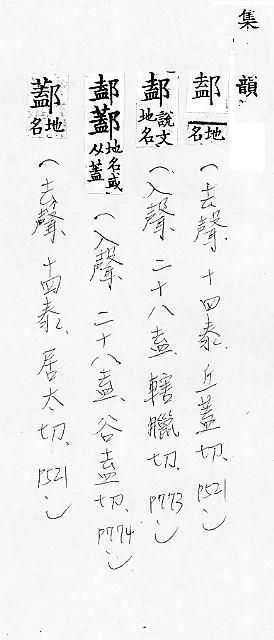 集韻
𨜴 地名（去聲．十四泰．丘蓋切．P521．）
𨜴 說文地名（入聲．二十八盍．轄臘切．P773．）
𨜴鄐 地名或从蓋（入聲．二十八盍．谷盍切．P774．）
地名（去聲．十四泰．居太切．P521．）